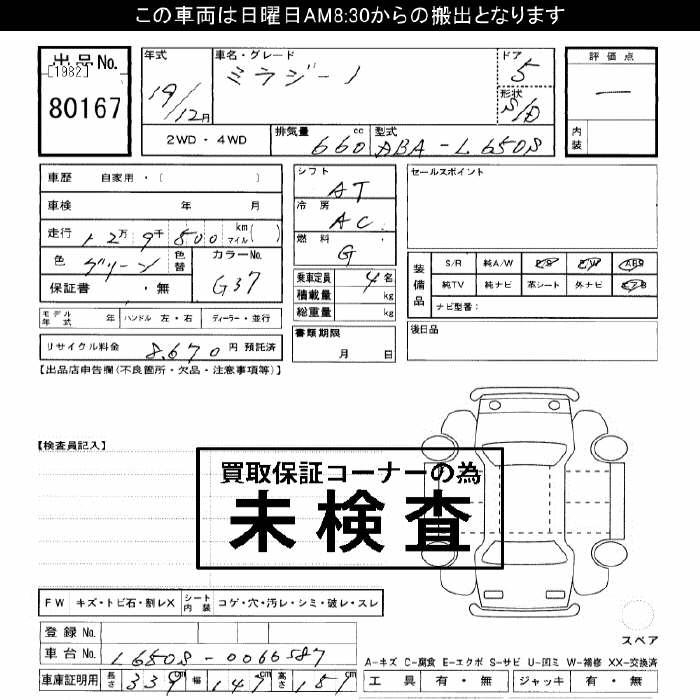 この車両は日曜日AM8:30からの搬出となります
出品No.
[1982]
80167
年式
19/12月
車名・グレード
ミラジーノ
ドア
5
形状
S/D
2WD・4WD
排気量
660 cc
型式
ABA-L650S
評価点
一
内装
車歴 自家用・( )
車検 年 月
走行 12万9千800 km マイル( )
色 グリーン 色替
カラーNo.
G37
保証書 ・無
モデル年式 年 ハンドル 左・右 ディーラー・並行
リサイクル料金 8,670円 預託済
シフト
AT
冷房
AC
燃料
G
乗車定員 4名
積載量 kg
総重量 kg
書類期限
月 日
セールスポイント
装備品
S/R 純A/W P/S P/W ABS
純TV 純ナビ 革シート 外ナビ エアB
ナビ型番:
後日品
【出品店申告欄(不良箇所・欠品・注意事項等)】
【検査員記入】
買取保証コーナーの為
未検査
FW キズ・トビ石・割レX シート内装 コゲ・穴・汚レ・シミ・破レ・スレ
登録No.
車台No. L650S-0066587
車庫証明用 長さ 339cm 幅 147cm 高さ 151cm
スペア
A-キズ C-腐食 E-エクボ S-サビ U-凹ミ W-補修 XX-交換済
工具 有・無 ジャッキ 有・無